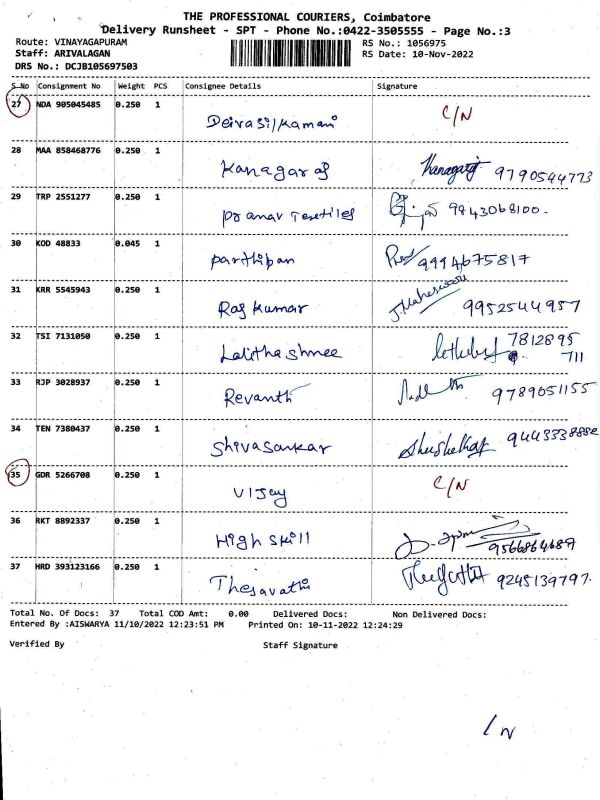 THE PROFESSIONAL COURIERS, Coimbatore
Delivery Runsheet - SPT - Phone No.:0422-3505555 - Page No.:3
Route: VINAYAGAPURAM RS No.: 1056975
Staff: ARIVALAGAN RS Date: 10-Nov-2022
DRS No.: DCJB105697503
S No Consignment No Weight PCS Consignee Details Signature
27 NDA 905045485 0.250 1 C/N
Deivasilkamani
28 MAA 858468776 0.250 1
Kanagaraj Kanagaraj 9790544773
29 TRP 2551277 0.250 1
Pranav Textiles 9843068100.
30 KOD 48833 0.045 1
Parthipan 9994675817
31 KRR 5545943 0.250 1 J.Maheswari
Raj kumar 9952544957
32 TSI 7131050 0.250 1 7812895
Lalithashree 711
33 RJP 3028937 0.250 1
Revanth 9789051155
34 TEN 7380437 0.250 1 9443338882
Shivasankar
35 GDR 5266708 0.250 1 C/N
Vijay
36 RKT 8892337 0.250 1
High skill 9566864687
37 HRD 393123166 0.250 1
Thejavathi 9245139797.
Total No. Of Docs: 37 Total COD Amt: 0.00 Delivered Docs: Non Delivered Docs:
Entered By :AISWARYA 11/10/2022 12:23:51 PM Printed On: 10-11-2022 12:24:29
Verified By Staff Signature